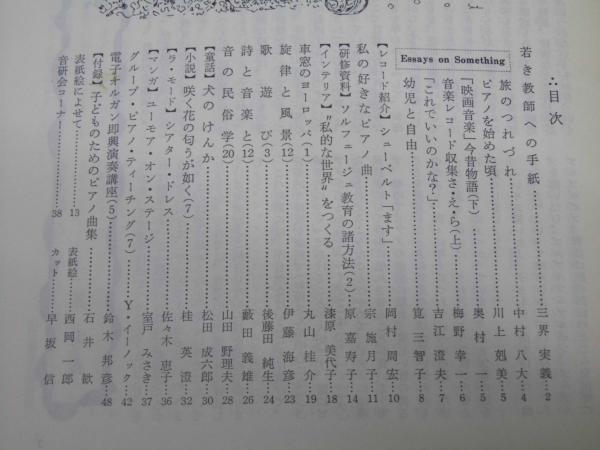 ∴目次
若き教師への手紙……三界 実義…2
旅のつれづれ……中村 八大…4
ピアノを始めた頃……川上 剋美…5
「映画音楽」今昔物語(下)……奥村 一…5
音楽レコード収集さ・え・ら(上)……梅野 幸一…6
「これでいいのかな?」……吉江 澄夫…7
幼児と自由……寛 三智子…8
Essays on Something
【レコード紹介】シューベルト「ます」……岡村 周宏…10
私の好きなピアノ曲……宗 施月子…11
【研修資料】ソルフェージュ教育の諸方法(2)……原 嘉寿子…14
【インテリア】"私的な世界"をつくる……漆原 美代子…18
車窓のヨーロッパ(1)……丸山 桂介…19
旋律と風景(12)……伊藤 海彦…23
歌遊び(3)……後藤田 純生…24
詩と音楽と(12)……藪田 義雄…26
音の民俗学(20)……山田 野理夫…28
【童話】犬のけんか……松田 成六郎…30
【小説】咲く花の匂うが如く(7)……桂 英澄…32
【ラ・モード】シアター・ドレス……佐々木 恵子…36
【マンガ】ユーモア・オン・ステージ……室戸 みさき…37
グループ・ピアノ・ティーチング(7)……Y・イーノック…42
電子オルガン即興演奏講座(5)……鈴木 邦彦…48
【付録】子どものためのピアノ曲集……石井 歓
表紙絵によせて……13
音研会コーナー……38
表紙絵……西岡 一郎
カット……早坂 信